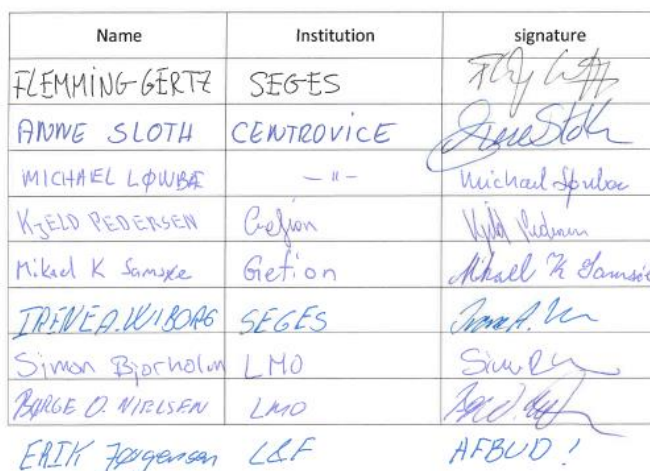 Name Institution signature
FLEMMING GERTZ SEGES
ANNE SLOTH CENTROVICE Anne Sloth
MICHAEL LØWBÆ – " – Michael
KJELD PEDERSEN Gefion Kjeld Pedersen
Mikael K Samsøe Gefion Mikael K Samsøe
IRENE A. WIBORG SEGES Irene A.
Simon Bjorholm LMO
BØRGE O. NIELSEN LMO
ERIK Jørgensen L&F AFBUD !